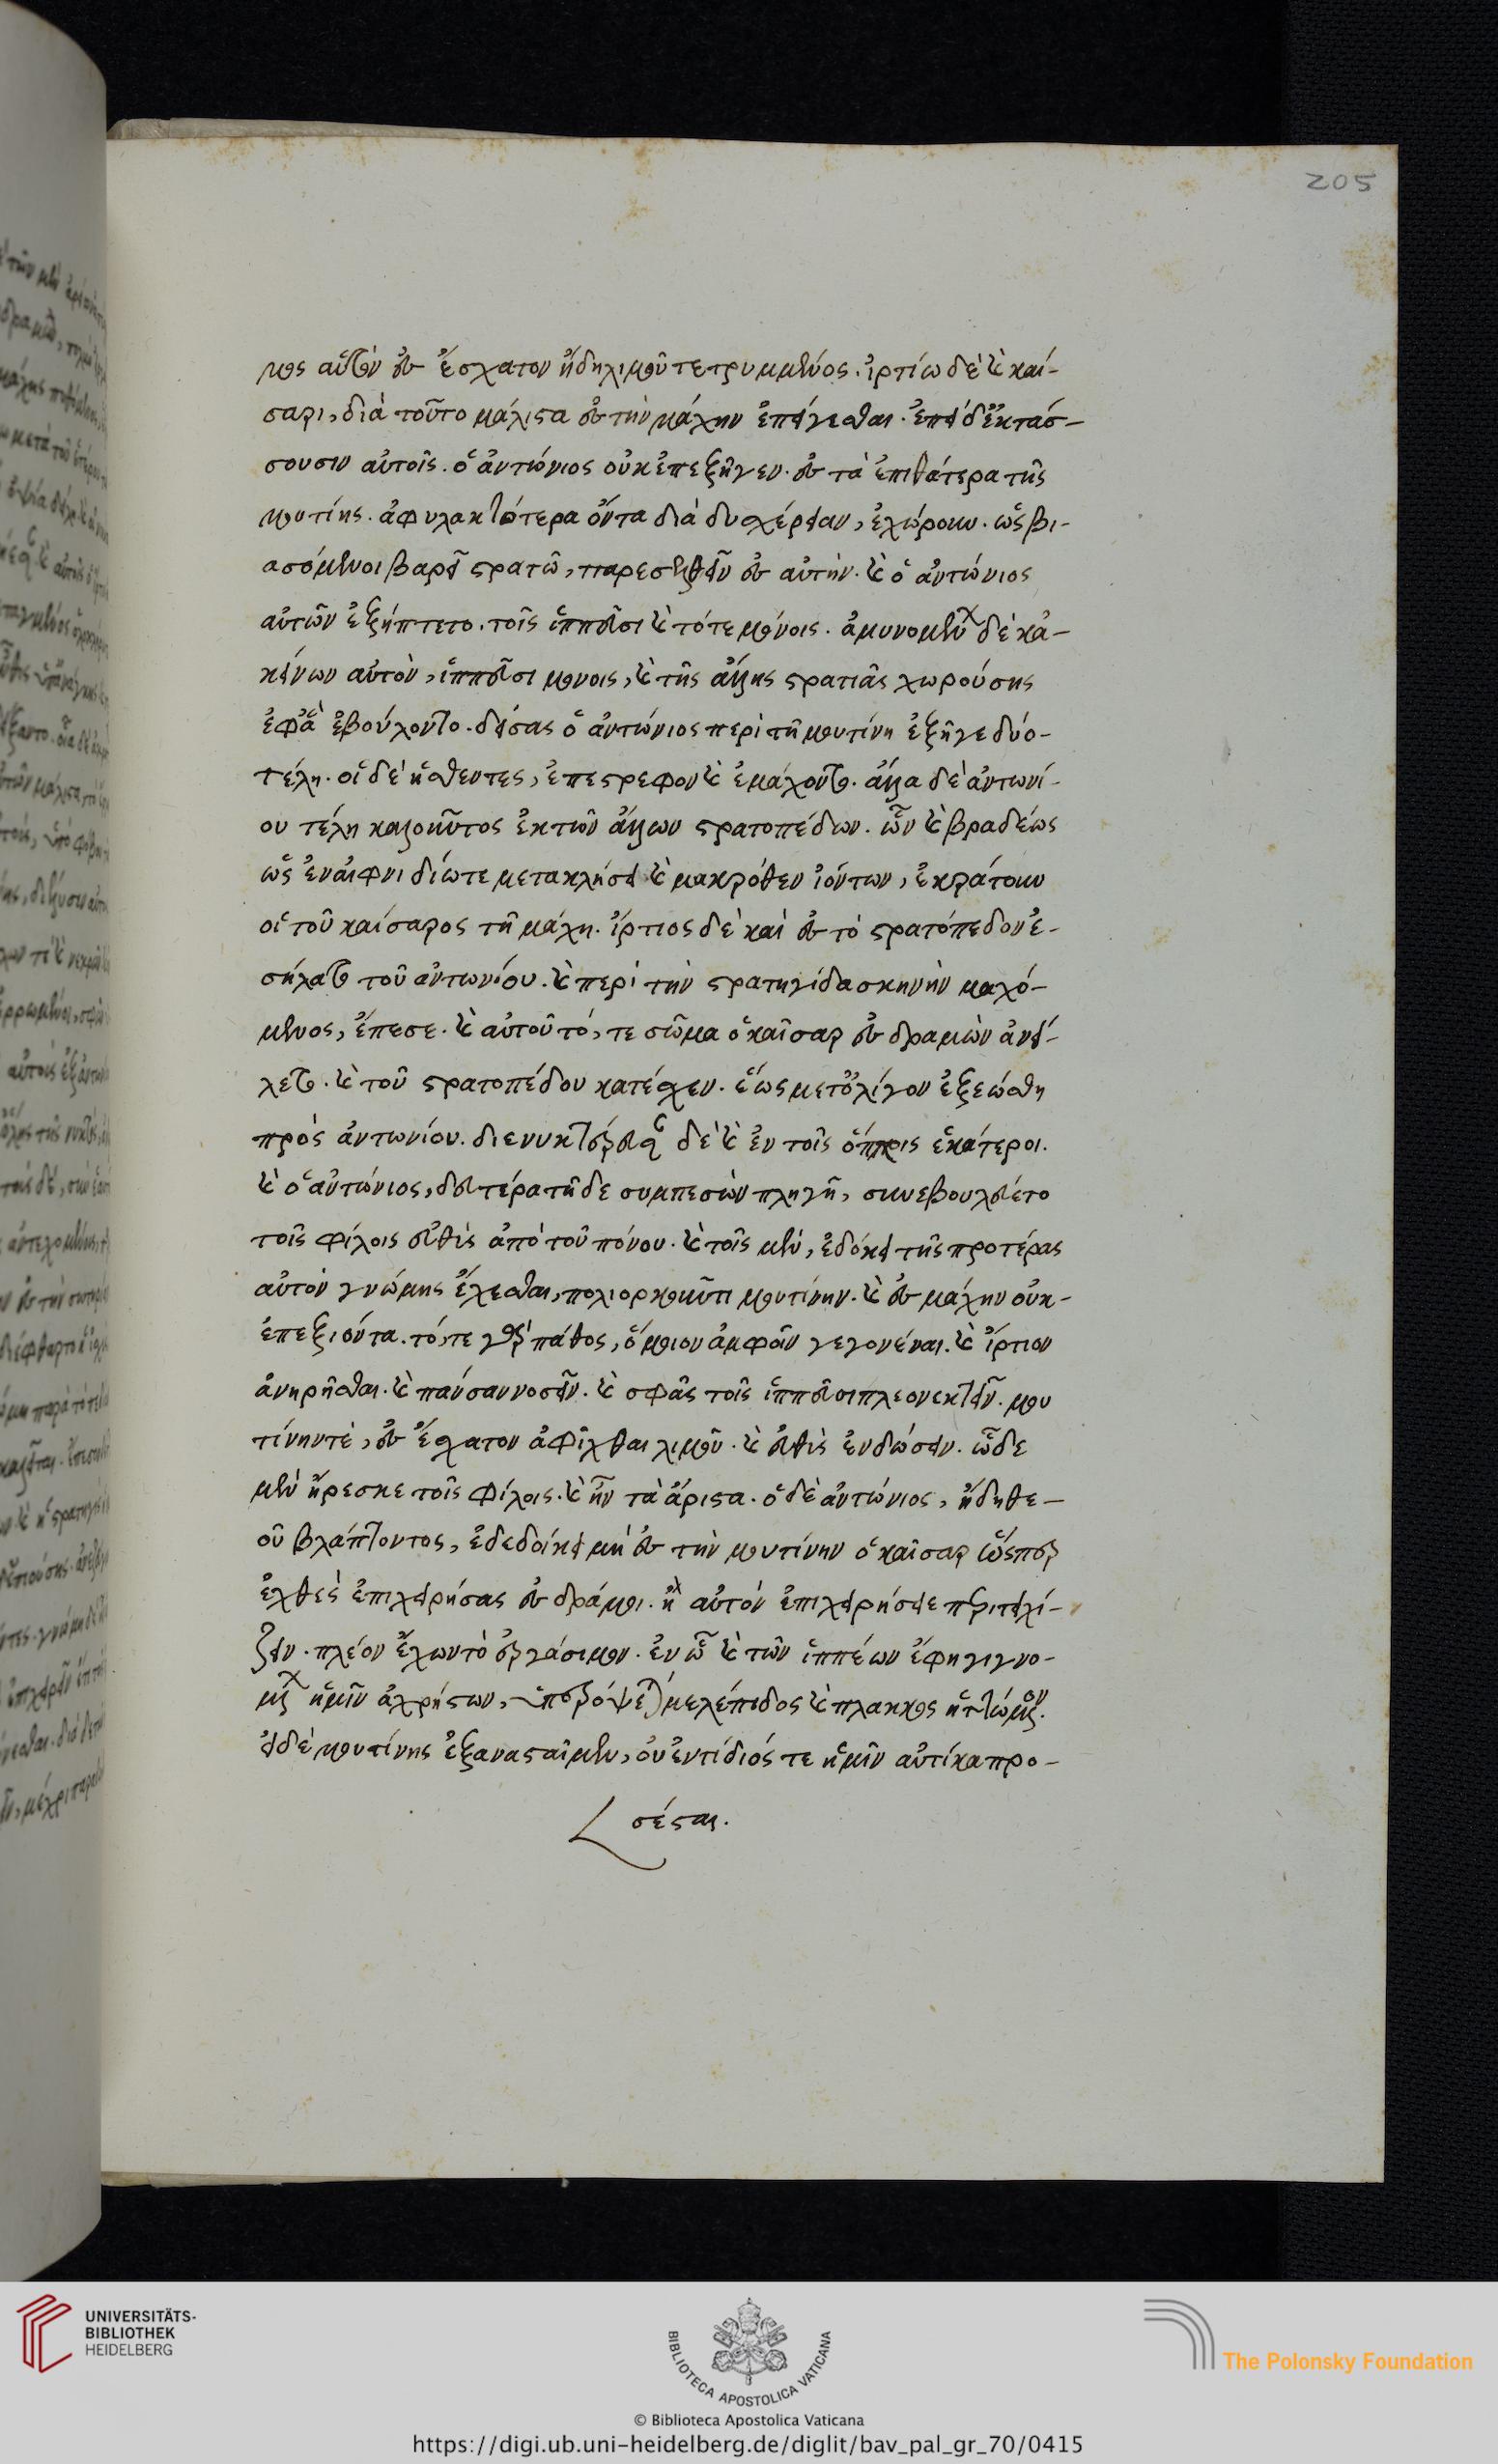 μος αὐτὸν ἐς ἔσχατον ἤδη λιμοῦ τετρυμμένος. ἱρτίω δὲ καὶ καί-
σαρι, διὰ τοῦτο μάλιστα ἐς τὴν μάχην ἐπείγεσθαι. ἐπεὶ δ' ἐκτάσ-
σουσιν αὐτοῖς. ὁ ἀντώνιος οὐκ ἐπεξῆγεν. ἐς τὰ ἐπιθάτερα τῆς
μουτίνης. ἀφυλακτότερα ὄντα διὰ δυσχέρειαν, ἐχώρουν. ὡς βι-
ασόμενοι βαρεῖ στρατῶ, παρεσελθεῖν ἐς αὐτήν. καὶ ὁ ἀντώνιος
αὐτῶν ἐξήπτετο. τοῖς ἱππεῦσι καὶ τότε μόνοις. ἀμυνομένων δὲ κἀ-
κείνων αὐτὸν, ἱππεῦσι μόνοις, καὶ τῆς ἄλλης στρατιᾶς χωρούσης
ἐφ' ἃ ἐβούλοντο. δείσας ὁ ἀντώνιος περὶ τῆ μουτίνη ἐξῆγε δύο-
τέλη. οἱ δὲ ἡσθέντες, ἐπέστρεφον καὶ ἐμάχοντο. ἄλλα δὲ ἀντωνί-
ου τέλη καλοῦντος ἐκ τῶν ἄλλων στρατοπέδων. ὧν καὶ βραδέως
ὡς ἐν αἰφνιδίω τε μετακλήσει καὶ μακρόθεν ἰόντων, ἐκράτουν
οἱ τοῦ καίσαρος τῆ μάχη. ἵρτιος δὲ καὶ ἐς τὸ στρατόπεδον ἐ-
σήλατο τοῦ ἀντωνίου. καὶ περὶ τὴν στρατηγίδα σκηνὴν μαχό-
μενος, ἔπεσε. καὶ αὐτοῦ τό, τε σῶμα ὁ καῖσαρ ἐς δραμὼν ἀνεί-
λετο. καὶ τοῦ στρατοπέδου κατέσχεν. ἕως μετ' ὀλίγον ἐξεώσθη
πρὸς ἀντωνίου. διενυκτέρευσαν δὲ καὶ ἐν τοῖς ὅπλοις ἑκάτεροι.
καὶ ὁ ἀντώνιος, δευτέρα τῆδε συμπεσὼν πληγῆ, συνεβουλεύετο
τοῖς φίλοις εὐθὺς ἀπὸ τοῦ πόνου. καὶ τοῖς μὲν, ἐδόκει τῆς προτέρας
αὐτὸν γνώμης ἔχεσθαι, πολιορκοῦντι μουτίνην. καὶ ἐς μάχην οὐκ-
ἐπεξιόντα. τό, τε γὰρ πάθος, ὅμοιον ἀμφοῖν γεγονέναι. καὶ ἵρτιον
ἀνηρῆσθαι. καὶ πάνσαν νοσεῖν. καὶ σφᾶς τοῖς ἱππεῦσι πλεονεκτεῖν. μου
τίνην τὲ, ἐς ἔσχατον ἀφῖχθαι λιμοῦ. καὶ εὐθὺς ἐνδώσειν. ὧδε
μὲν ἤρεσκε τοῖς φίλοις. καὶ ἦν τὰ ἄριστα. ὁ δὲ ἀντώνιος, ἤδη θε-
οῦ βλάπτοντος, ἐδεδοίκει μὴ ἐς τὴν μουτίνην ὁ καῖσαρ ὥσπερ
ἐχθὲς ἐπιχειρήσας ἐς δράμοι. ἢ αὐτὸν ἐπιχειρήσειε περιτειχί-
ζειν. πλέον ἔχων τὸ ἐργάσιμον. ἐν ὧ καὶ τῶν ἱππέων ἔφη γιγνο-
μένων ἡμῖν ἀχρήστων, ὑπερόψεταί με λέπιδος καὶ πλακκος ἡττώμενον.
εἰ δὲ μουτίνης ἐξαναςταῖμεν, οὐεντίδιός τε ἡμῖν αὐτίκα προ-
σέσται.
205
UNIVERSITÄTS-
BIBLIOTHEK
HEIDELBERG
BIBLIOTECA APOSTOLICA VATICANA
The Polonsky Foundation
© Biblioteca Apostolica Vaticana
https://digi.ub.uni-heidelberg.de/diglit/bav_pal_gr_70/0415